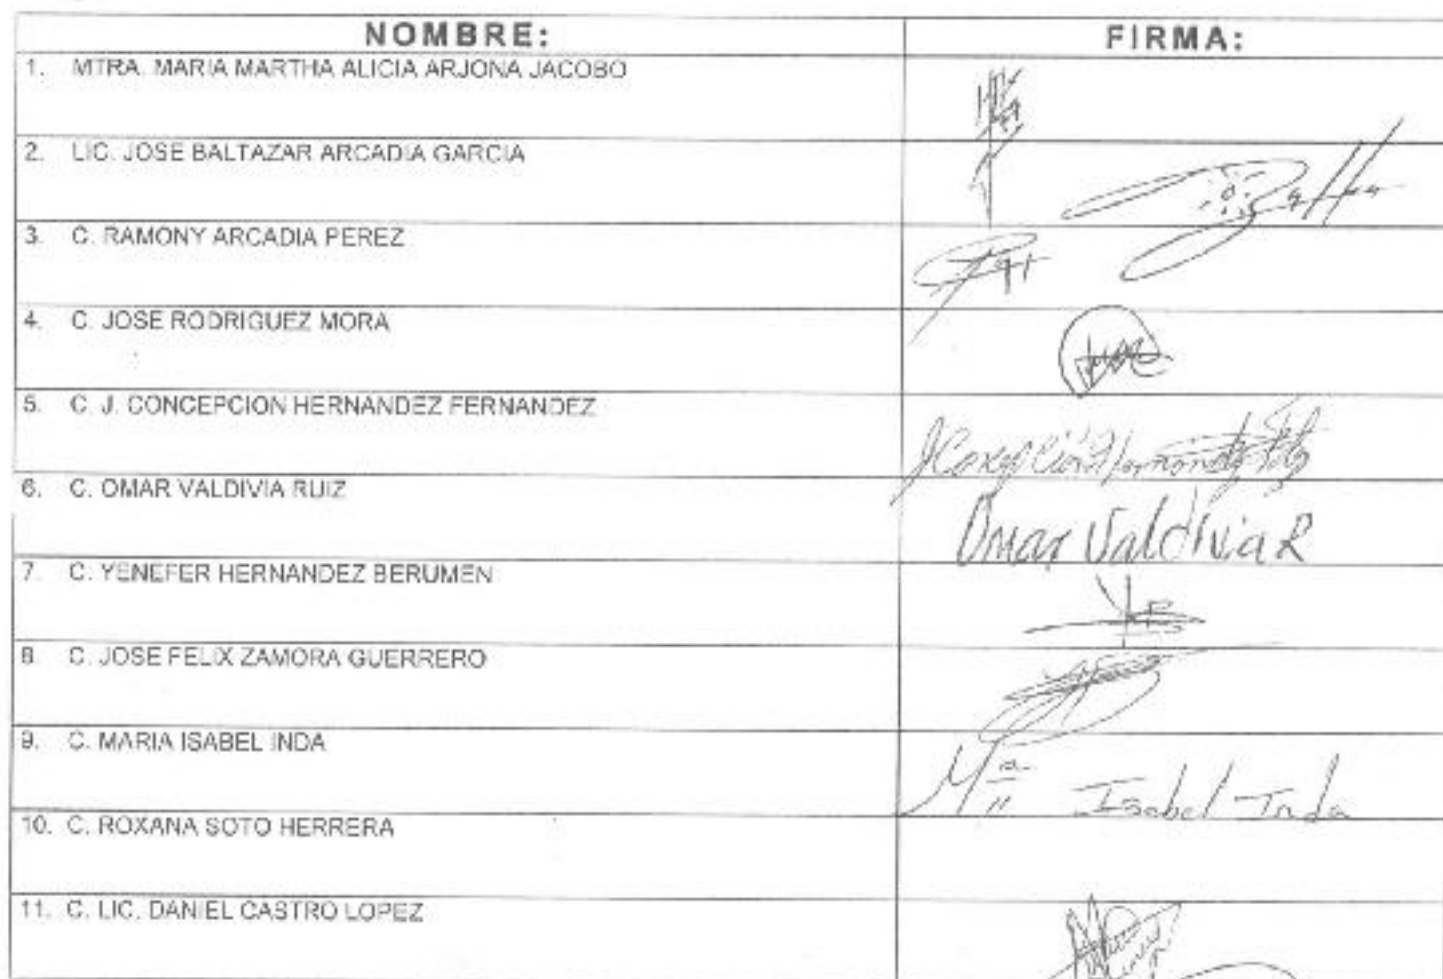 NOMBRE: FIRMA:
1. MTRA. MARIA MARTHA ALICIA ARJONA JACOBO
2. LIC. JOSE BALTAZAR ARCADIA GARCIA
3. C. RAMONY ARCADIA PEREZ
4. C. JOSE RODRIGUEZ MORA
5. C. J. CONCEPCION HERNANDEZ FERNANDEZ
6. C. OMAR VALDIVIA RUIZ
Omar Valdivia R
7. C. YENEFER HERNANDEZ BERUMEN
8. C. JOSE FELIX ZAMORA GUERRERO
9. C. MARIA ISABEL INDA
Ma Isabel Inda
10. C. ROXANA SOTO HERRERA
11. C. LIC. DANIEL CASTRO LOPEZ